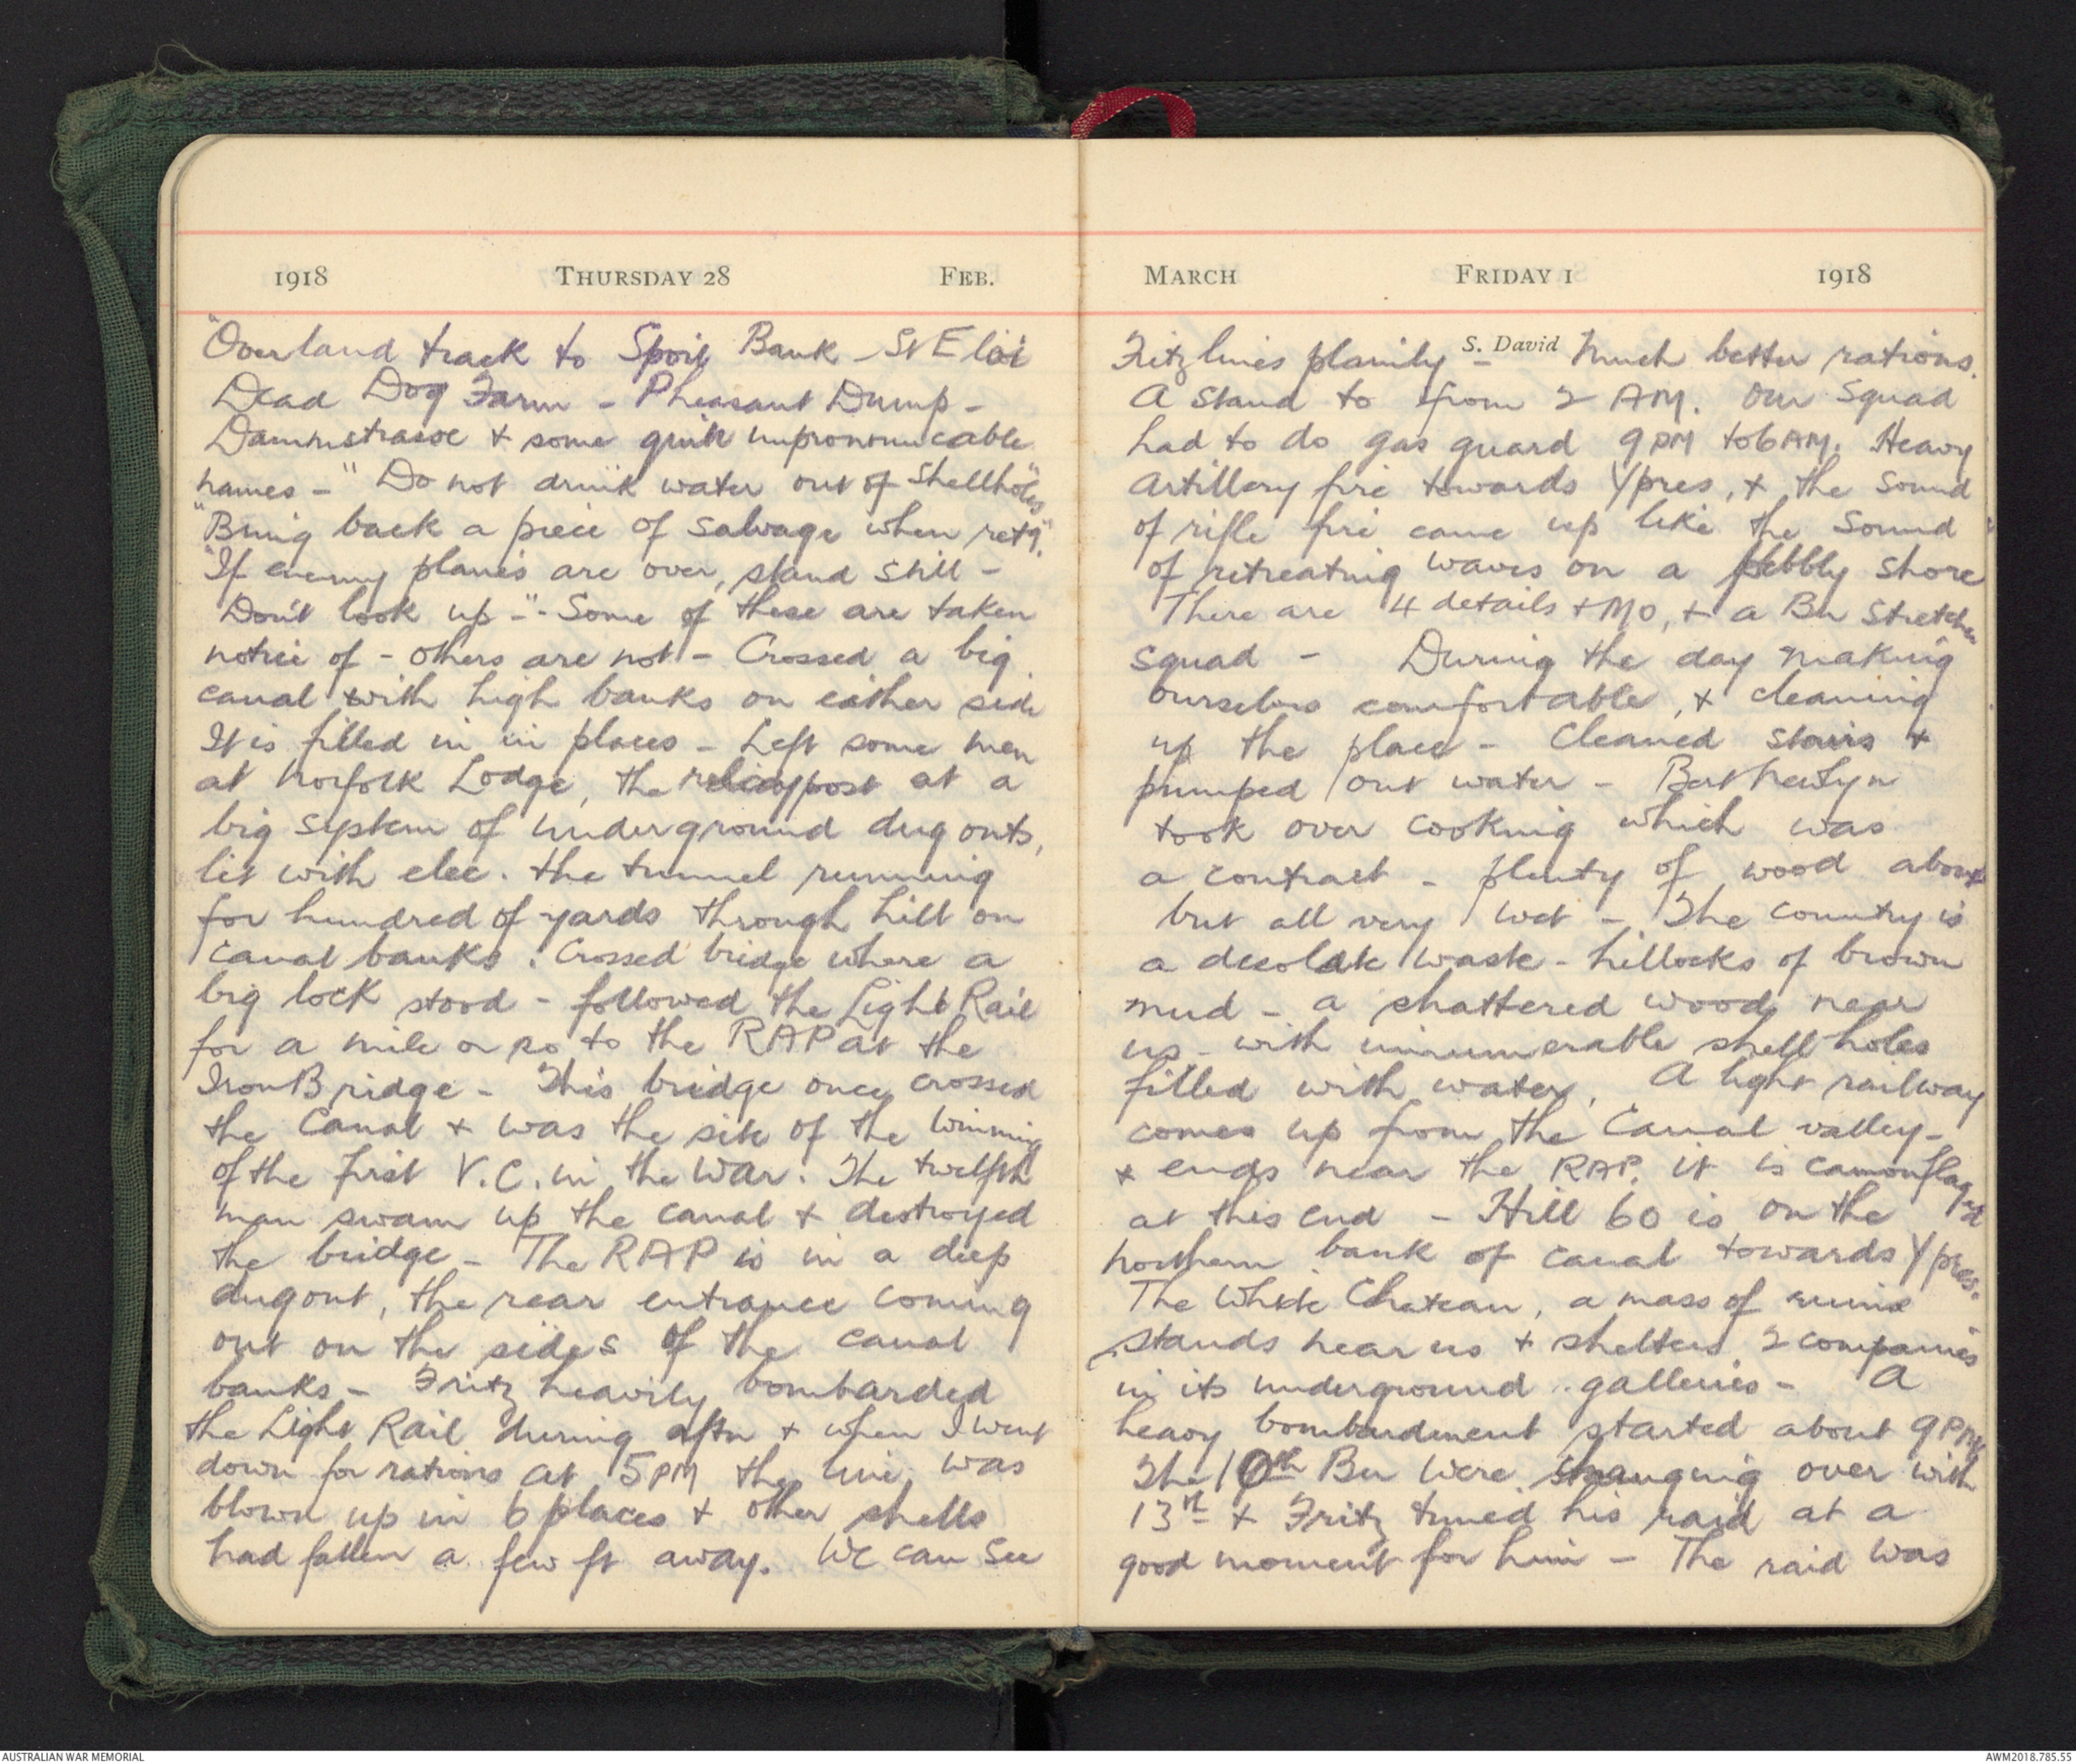 1918 THURSDAY 28 FEB.
"Overland track to Spoil Bank - St Eloi
Dead Dog Farm - Pheasant Dump -
Dammstrasse & some quite unpronounceable
names - "Do not drink water out of Shellholes"
"Bring back a piece of salvage when retg".
"If enemy planes are over, stand still -
Don't look up -" - Some of these are taken
notice of - others are not - Crossed a big
canal with high banks on either side
It is filled in in places - Left some men
at Norfolk Lodge, the relay post at a
big system of underground dug outs,
lit with elec. the tunnel running
for hundred of yards through hill on
canal banks. Crossed bridge where a
big lock stood - followed the Light Rail
for a mile or so to the RAP at the
Iron Bridge - This bridge once crossed
the Canal & was the site of the winning
of the first V.C. in the war. The twelfth
man swam up the canal & destroyed
the bridge - The RAP is in a deep
dugout, the rear entrance coming
out on the sides of the canal
banks - Fritz heavily bombarded
the Light Rail during aftn & when I went
down for rations at 5 PM the line was
blown up in 6 places & other shells
had fallen a few ft away. We can see
MARCH FRIDAY 1 1918
S. David
Fritz lines plainly - Much better rations.
A stand to from 2 AM. Our Squad
had to do gas guard 9 PM to 6 AM. Heavy
artillery fire towards Ypres, & the sound
of rifle fire came up like the sound
of retreating waves on a pebbly shore
There are 4 details & MO, & a Bn stretcher
squad - During the day making
ourselves comfortable, & cleaning
up the place - Cleaned stairs &
pumped out water - Bert
took over cooking which was
a contract - plenty of wood about
but all very wet - The country is
a desolate waste - hillocks of brown
mud - a shattered wood near
us - with innumerable shell holes
filled with water. A light railway
comes up from the Canal valley -
& ends near the RAP. it is camouflaged
at this end - Hill 60 is on the
northern bank of canal towards Ypres.
The White Chateau, a mass of ruins
stands near us & shelters 2 companies
in its underground galleries - A
heavy bombardment started about 9 PM
The 10th Bn were changing over with
13th & Fritz timed his raid at a
good moment for him - The raid was
AUSTRALIAN WAR MEMORIAL
AWM2018.785.55